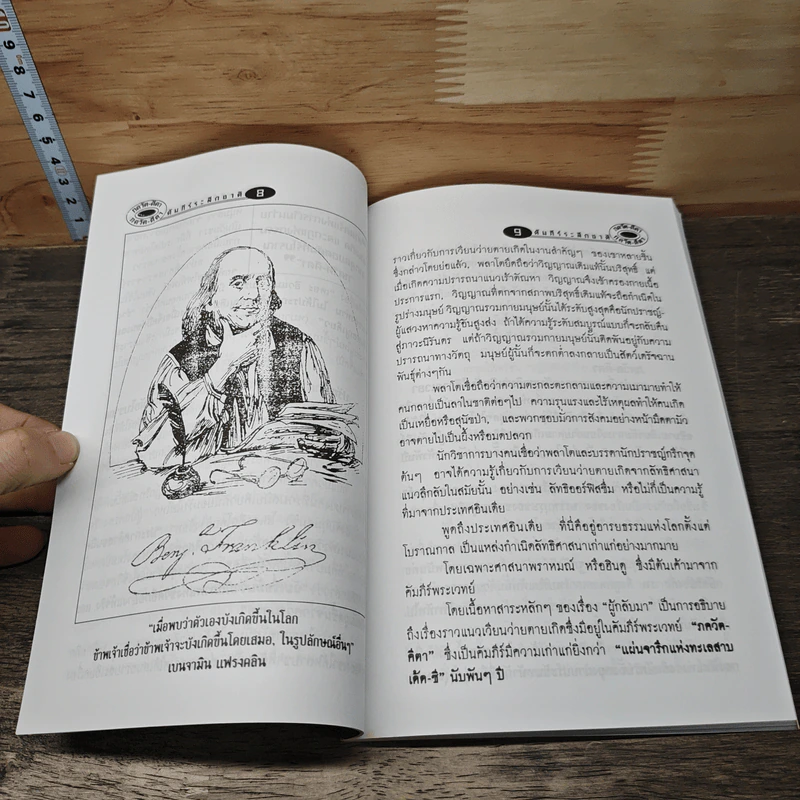 9 8 7 6 5 4 3 2 1
ภควัต-คีตา
ภควัต-คีตา
คัมภีร์ระลึกชาติ 8
Benj. Franklin
"เมื่อพบว่าตัวเองบังเกิดขึ้นในโลก
ข้าพเจ้าเชื่อว่าข้าพเจ้าจะบังเกิดขึ้นโดยเสมอ, ในรูปลักษณ์อื่นๆ"
เบนจามิน แฟรงคลิน
9 คัมภีร์ระลึกชาติ
ภควัต-คีตา
ภควัต-คีตา
ราวเกี่ยวกับการเวียนว่ายตายเกิดในงานสำคัญๆ ของเขาหลายชิ้น
ซึ่งกล่าวโดยย่อแล้ว, พลาโตยึดถือว่าวิญญาณเดิมแท้นั้นบริสุทธิ์ แต่
เมื่อเกิดความปรารถนาแนวเร้าตัณหา วิญญาณจึงเข้าครองกายเนื้อ
ประการแรก, วิญญาณที่ตกจากสภาพบริสุทธิ์เดิมแท้จะถือกำเนิดใน
รูปร่างมนุษย์ วิญญาณรวมกายมนุษย์นั้นได้ระดับสูงสุดคือนักปราชญ์-
ผู้แสวงหาความรู้ชั้นสูงส่ง ถ้าได้ความรู้ระดับสมบูรณ์แบบก็จะกลับคืน
สู่ภาวะนิรันดร แต่ถ้าวิญญาณรวมกายมนุษย์นั้นติดพันอยู่กับความ
ปรารถนาทางวัตถุ มนุษย์ผู้นั้นก็จะตกต่ำลงกลายเป็นสัตว์เดรัจฉาน
พันธุ์ต่างๆกัน
พลาโตเชื่อถือว่าความตะกละตะกลามและความเมามายทำให้
คนกลายเป็นลาในชาติต่อๆไป ความรุนแรงและไร้เหตุผลทำให้คนเกิด
เป็นเหยี่ยวหรือสุนัขป่า, และพวกชอบมัวการสังคมอย่างหน้ามืดตามัว
อาจตายไปเป็นผึ้งหรือมดปลวก
นักวิชาการบางคนเชื่อว่าพลาโตและบรรดานักปราชญ์กรีกชุด
ต้นๆ อาจได้ความรู้เกี่ยวกับการเวียนว่ายตายเกิดจากลัทธิศาสนา
แนวลึกลับในสมัยนั้น อย่างเช่น ลัทธิออร์ฟิสซึ่ม หรือไม่ก็เป็นความรู้
ที่มาจากประเทศอินเดีย
พูดถึงประเทศอินเดีย ที่นี่คืออู่อารยธรรมแห่งโลกตั้งแต่
โบราณกาล เป็นแหล่งกำเนิดลัทธิศาสนาเก่าแก่อย่างมากมาย
โดยเฉพาะศาสนาพราหมณ์ หรือฮินดู ซึ่งมีต้นเค้ามาจาก
คัมภีร์พระเวทย์
โดยเนื้อหาสาระหลักๆ ของเรื่อง "ผู้กลับมา" เป็นการอธิบาย
ถึงเรื่องราวแนวเวียนว่ายตายเกิดซึ่งมีอยู่ในคัมภีร์พระเวทย์ "ภควัต-
คีตา" ซึ่งเป็นคัมภีร์มีความเก่าแก่ยิ่งกว่า "แผ่นจารึกแห่งทะเลสาบ
เด้ด-ซี" นับพันๆ ปี